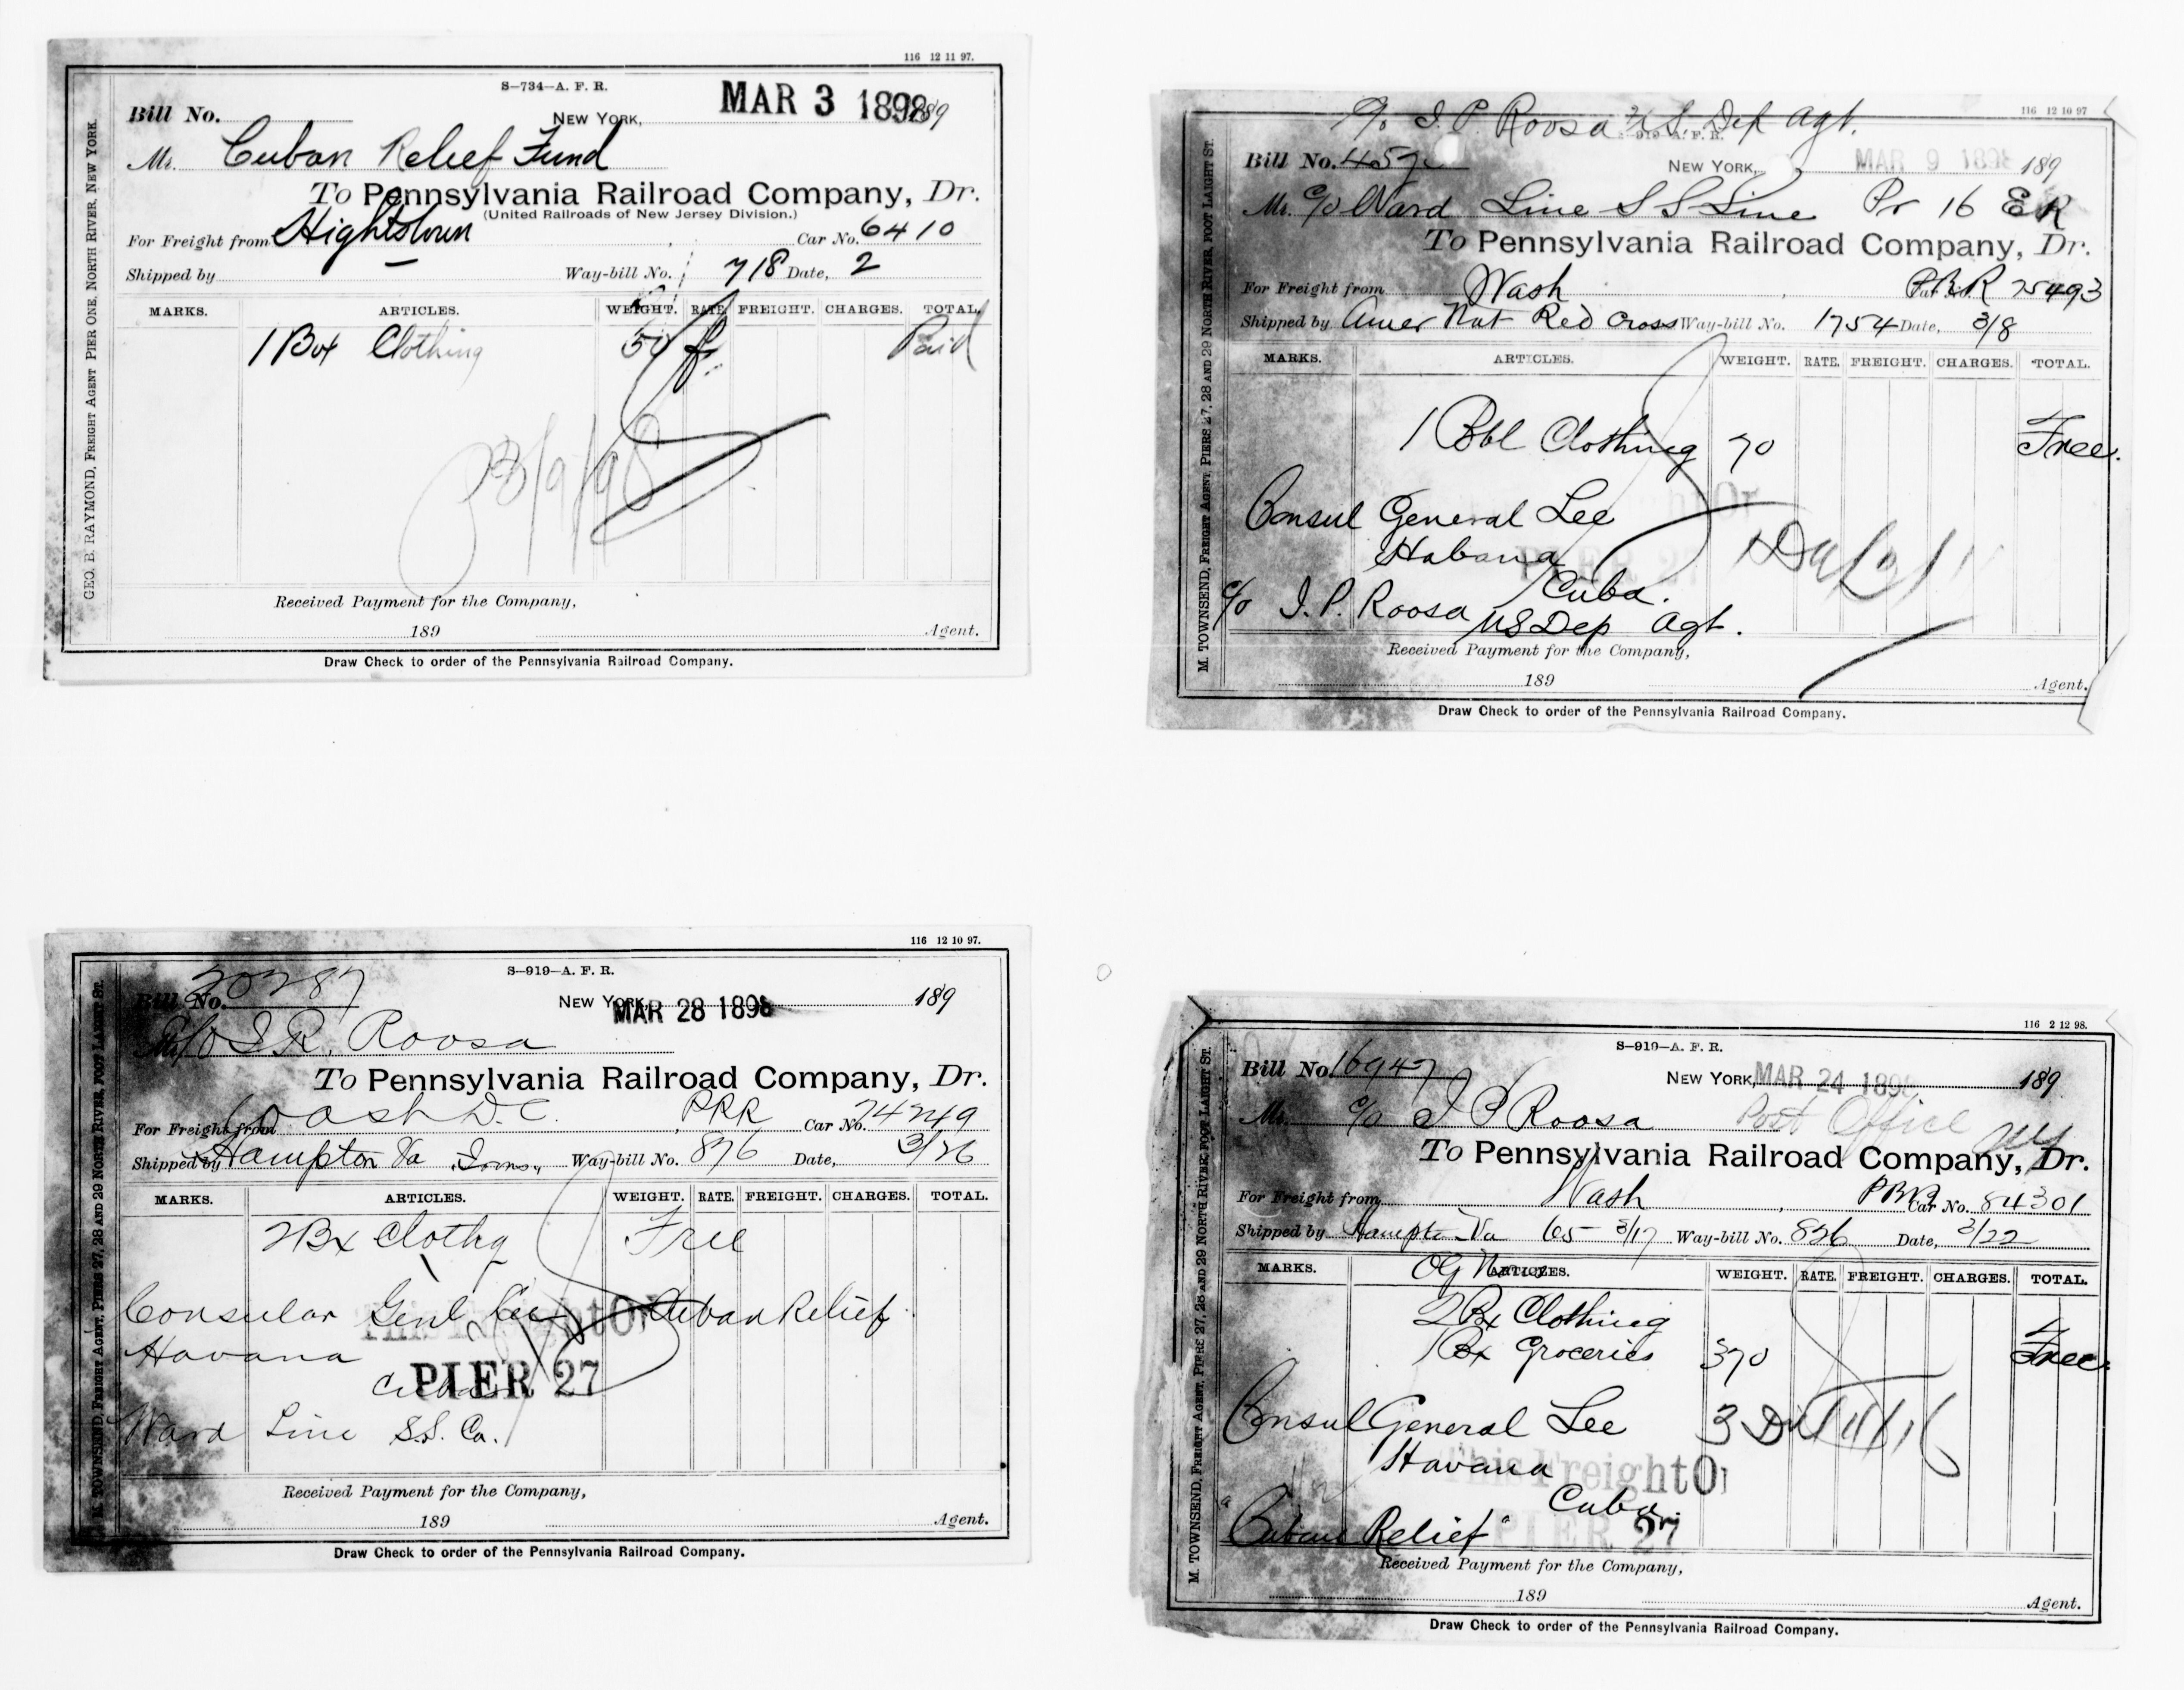 116 12 11 97.
S—734—A. F. R.
Bill No.
NEW YORK, MAR 3 1898 189
Mr. Cuban Relief Fund
To Pennsylvania Railroad Company, Dr.
(United Railroads of New Jersey Division.)
For Freight from Hightstown Car No. 6410
Shipped by Way-bill No. 718 Date, 2
MARKS. ARTICLES. WEIGHT. RATE. FREIGHT. CHARGES. TOTAL.
1 Box Clothing 50 Paid
3/9/98
Received Payment for the Company,
189 Agent.
Draw Check to order of the Pennsylvania Railroad Company.
GEO. B. RAYMOND, FREIGHT AGENT PIER ONE, NORTH RIVER, NEW YORK.
116 12 10 97
c/o I. P. Roosa U S Dep Agt.
S—919—A. F. R.
Bill No.
NEW YORK, MAR 9 1898 189
Mr. c/o Ward Line S S Line Pr 16 E R
To Pennsylvania Railroad Company, Dr.
For Freight from Wash P.R.R 75493
Shipped by Amer Nat Red Cross Way-bill No. 1754 Date, 3/8
MARKS. ARTICLES. WEIGHT. RATE. FREIGHT. CHARGES. TOTAL.
1 Bbl Clothing 70 Free.
Consul General Lee
Habana
PIER 27
Cuba.
c/o I. P. Roosa US Dep Agt.
Received Payment for the Company,
189 Agent.
Draw Check to order of the Pennsylvania Railroad Company.
M. TOWNSEND, FREIGHT AGENT, PIERS 27, 28 AND 29 NORTH RIVER, FOOT LAIGHT ST.
116 12 10 97.
S—919—A. F. R.
Bill No. 20287
NEW YORK, MAR 28 1898 189
Mr. c/o I. R. Roosa
To Pennsylvania Railroad Company, Dr.
For Freight from Wash D.C. PRR Car No. 74249
Shipped by Hampton Va Way-bill No. 876 Date, 3/26
MARKS. ARTICLES. WEIGHT. RATE. FREIGHT. CHARGES. TOTAL.
2 Bx Clothg Free
Consular Genl Lee Cuban Relief
This Freight On
Havana
PIER 27
Cuba
Ward Line S.S. Co.
Received Payment for the Company,
189 Agent.
Draw Check to order of the Pennsylvania Railroad Company.
M. TOWNSEND, FREIGHT AGENT, PIERS 27, 28 AND 29 NORTH RIVER, FOOT LAIGHT ST.
116 2 12 98.
S—919—A. F. R.
Bill No. 16947
NEW YORK, MAR 24 189 189
Mr. c/o I P Roosa Post Office
To Pennsylvania Railroad Company, Dr.
For Freight from Wash PRR Car No. 84301
Shipped by Hampton Va 65 3/17 Way-bill No. 826 Date, 3/22
MARKS. ARTICLES. WEIGHT. RATE. FREIGHT. CHARGES. TOTAL.
2 Bx Clothing
1 Bx Groceries 370 Free
Consul General Lee
Havana
This Freight On
Cuba.
"Cuban Relief"
PIER 27
Received Payment for the Company,
189 Agent.
Draw Check to order of the Pennsylvania Railroad Company.
M. TOWNSEND, FREIGHT AGENT, PIERS 27, 28 AND 29 NORTH RIVER, FOOT LAIGHT ST.